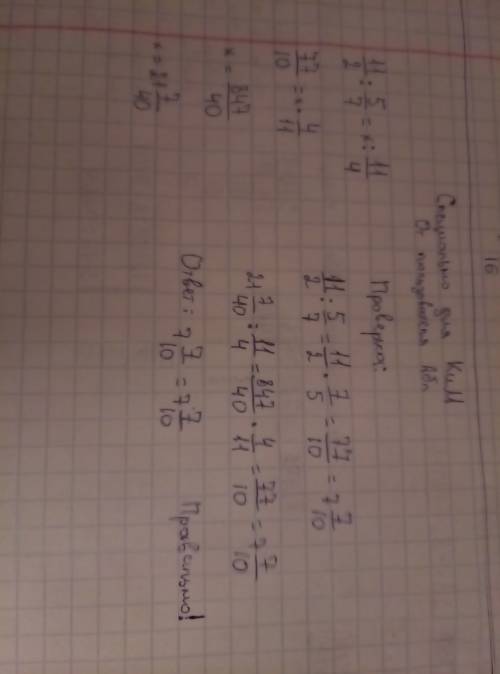 16
Специально для КиМ
От пользователя
11/2 : 5/7 = x : 11/4
77/10 = x · 4/11
x = 847/40
x = 21 7/40
Проверка:
11/2 : 5/7 = 11/2 · 7/5 = 77/10 = 7 7/10
21 7/40 : 11/4 = 847/40 · 4/11 = 77/10 = 7 7/10
Ответ: 7 7/10 = 7 7/10 Правильно!